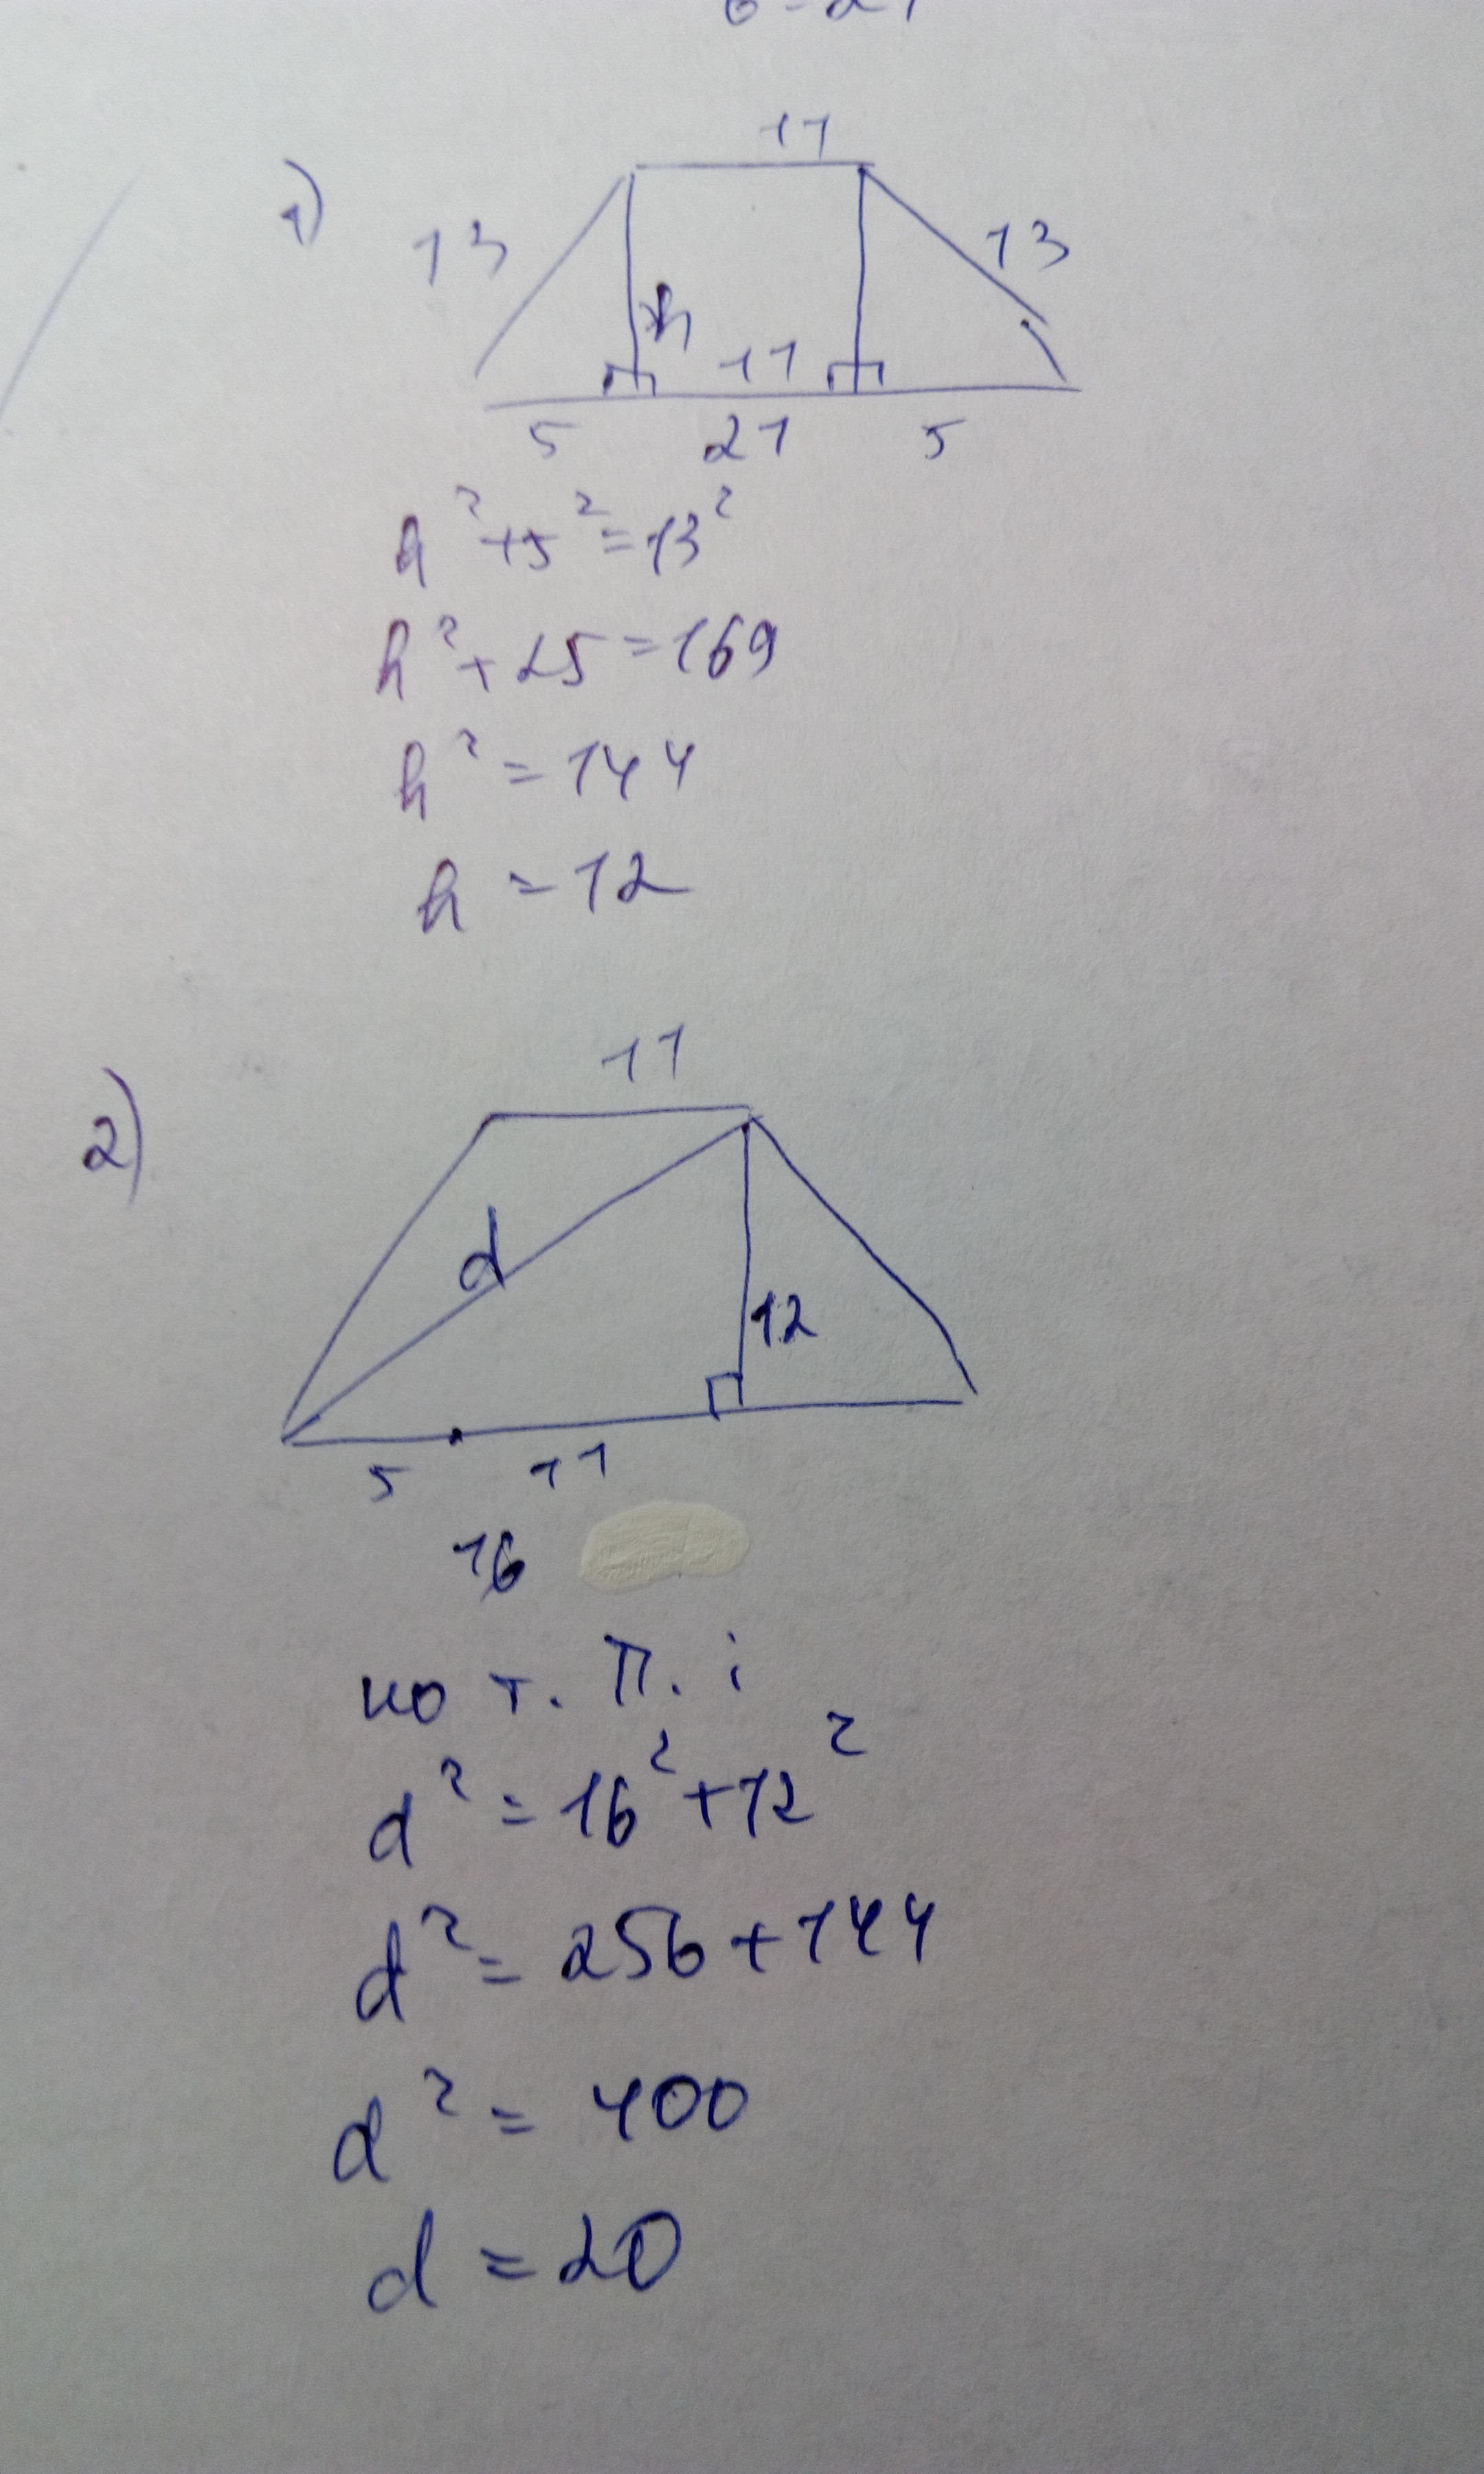 1)
11
13
13
h
11
5 21 5
h²+5²=13²
h²+25=169
h²=144
h=12
2)
11
d
12
5 11
16
по т. П. :
d²=16²+12²
d²=256+144
d²=400
d=20